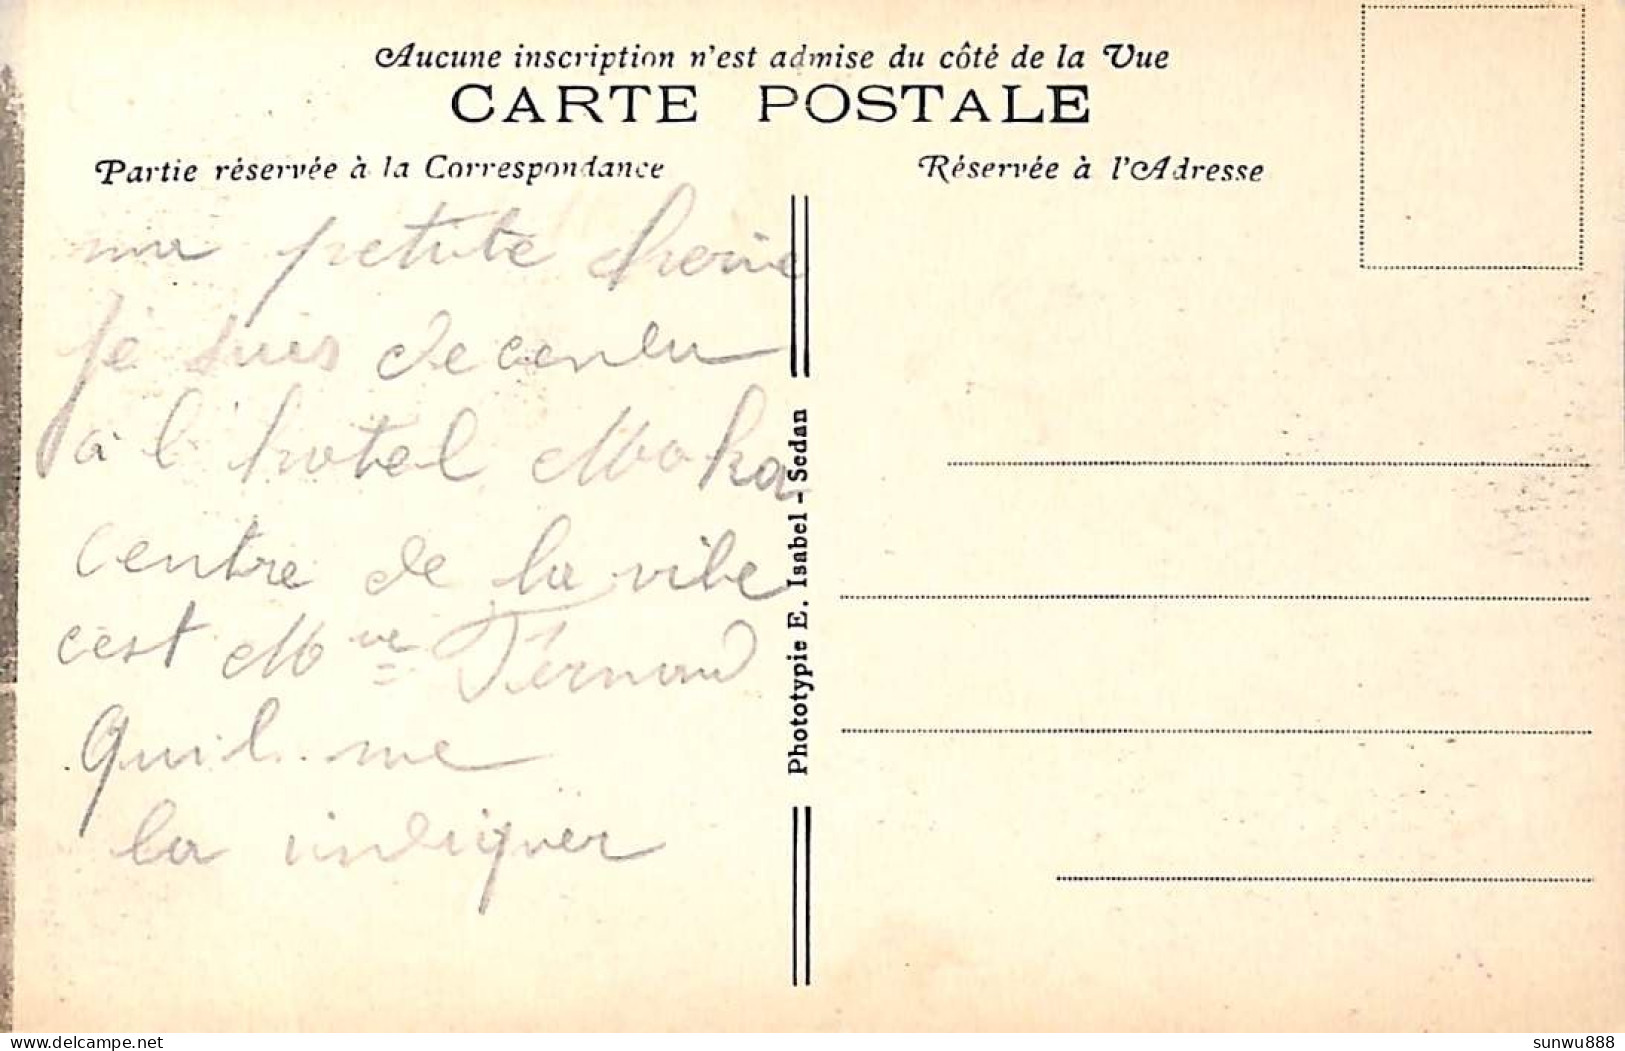 Aucune inscription n'est admise du côté de la Vue
CARTE POSTALE
Partie réservée à la Correspondance
Réservée à l'Adresse
ma petite cherie
je suis decendu
a l'hotel Moka
centre de la ville
c'est Mme Fernand
quil me
la indiquer
Phototypie E. Isabel - Sedan
delcampe.net
sunwu888